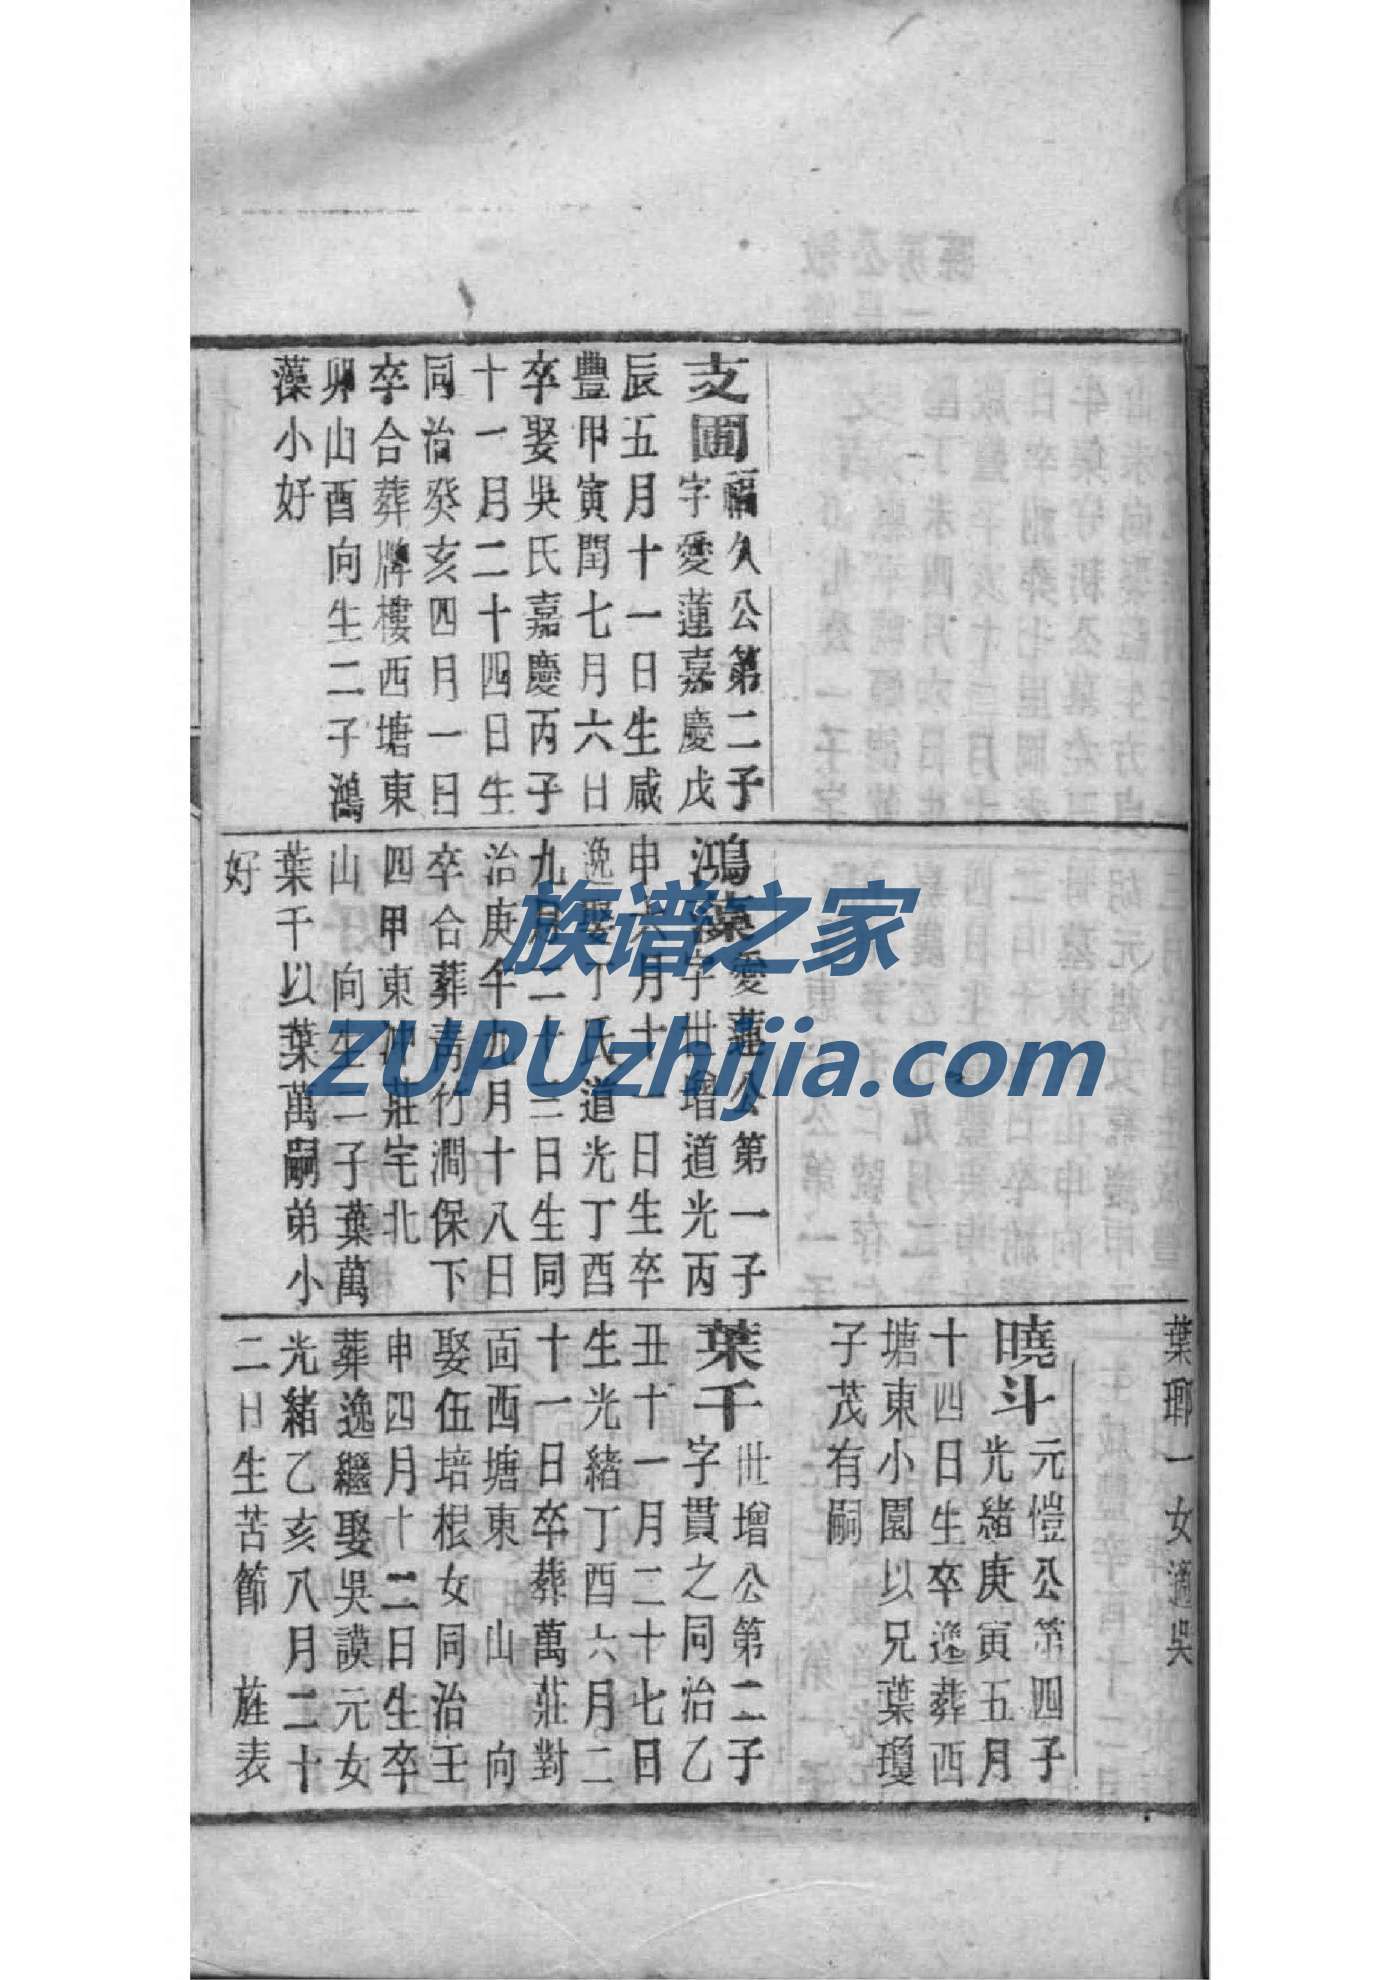 支圃
福久公第二子
字愛蓮嘉慶戊
辰五月十一日生咸
豐甲寅閏七月六日
卒娶吳氏嘉慶丙子
十一月二十四日生
同治癸亥四月一日
卒合葬牌樓西塘東
卯山酉向生二子鴻
藻小好
鴻藻
愛蓮公第一子
字世增道光丙
申六月十一日生卒
逸娶丁氏道光丁酉
九月二十三日生同
治庚午九月十八日
卒合葬青竹澗保下
四甲東沖莊宅北
山 向生二子葉萬
葉千以葉萬嗣弟小
好
葉瑯一女適吳
曉斗
元愷公第四子
光緒庚寅五月
十四日生卒逸葬西
塘東小園以兄葉瓊
子茂有嗣
葉千
世增公第二子
字貫之同治乙
丑十一月二十七日
生光緒丁酉六月二
十一日卒葬萬莊對
面西塘東 山 向
娶伍培根女同治壬
申四月十二日生卒
葬逸繼娶吳謨元女
光緒乙亥八月二十
二日生苦節 旌表
族谱之家
ZUPUzhijia.com